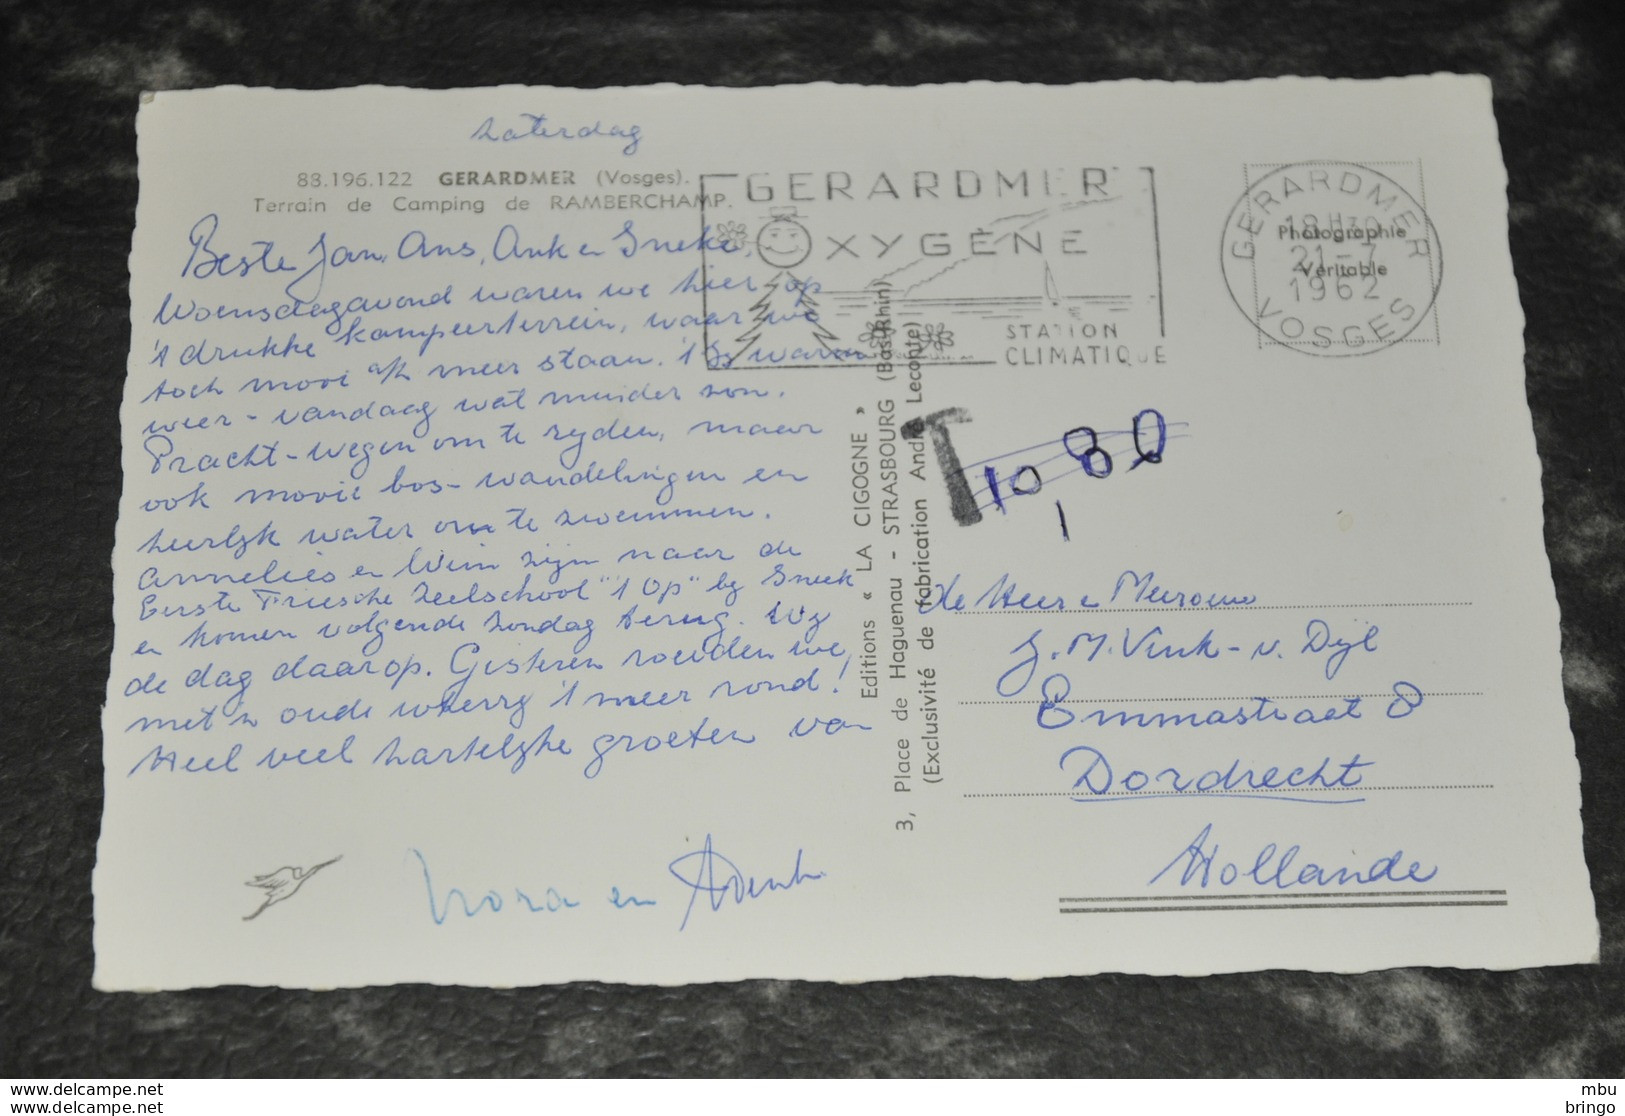 Zaterdag
88.196.122 GERARDMER (Vosges).
Terrain de Camping de RAMBERCHAMP.
Beste Jan, Ans, Ank en Ineke,
Woensdagavond waren we hier op
't drukke kampeerterrein, waar we
toch mooi a/h meer staan. 't Is warm
weer - vandaag wat minder zon.
Pracht-wegen om te rijden, maar
ook mooie bos-wandelingen en
heerlijk water om te zwemmen.
Annelies en Wim zijn naar de
Eerste Friesche Zeilschool "'t Op" bij Sneek
en komen volgende zondag terug. Wij
de dag daarop. Gisteren roeiden we,
met 'n oude wherry 't meer rond!
Heel veel hartelijke groeten van
Nora en
GERARDMER
OXYGÈNE
STATION
CLIMATIQUE
GERARDMER
18H30
21-7
1962
VOSGES
Photographie
Véritable
T 10,80
1
Editions « LA CIGOGNE »
3, Place de Haguenau - STRASBOURG (Bas-Rhin)
(Exclusivité de fabrication André Leconte)
de Heer en Mevrouw
J. M. Vink - v. Dijl
Emmastraat 8
Dordrecht
Hollande
www.delcampe.net
www.delcampe.net
mbu
bringo